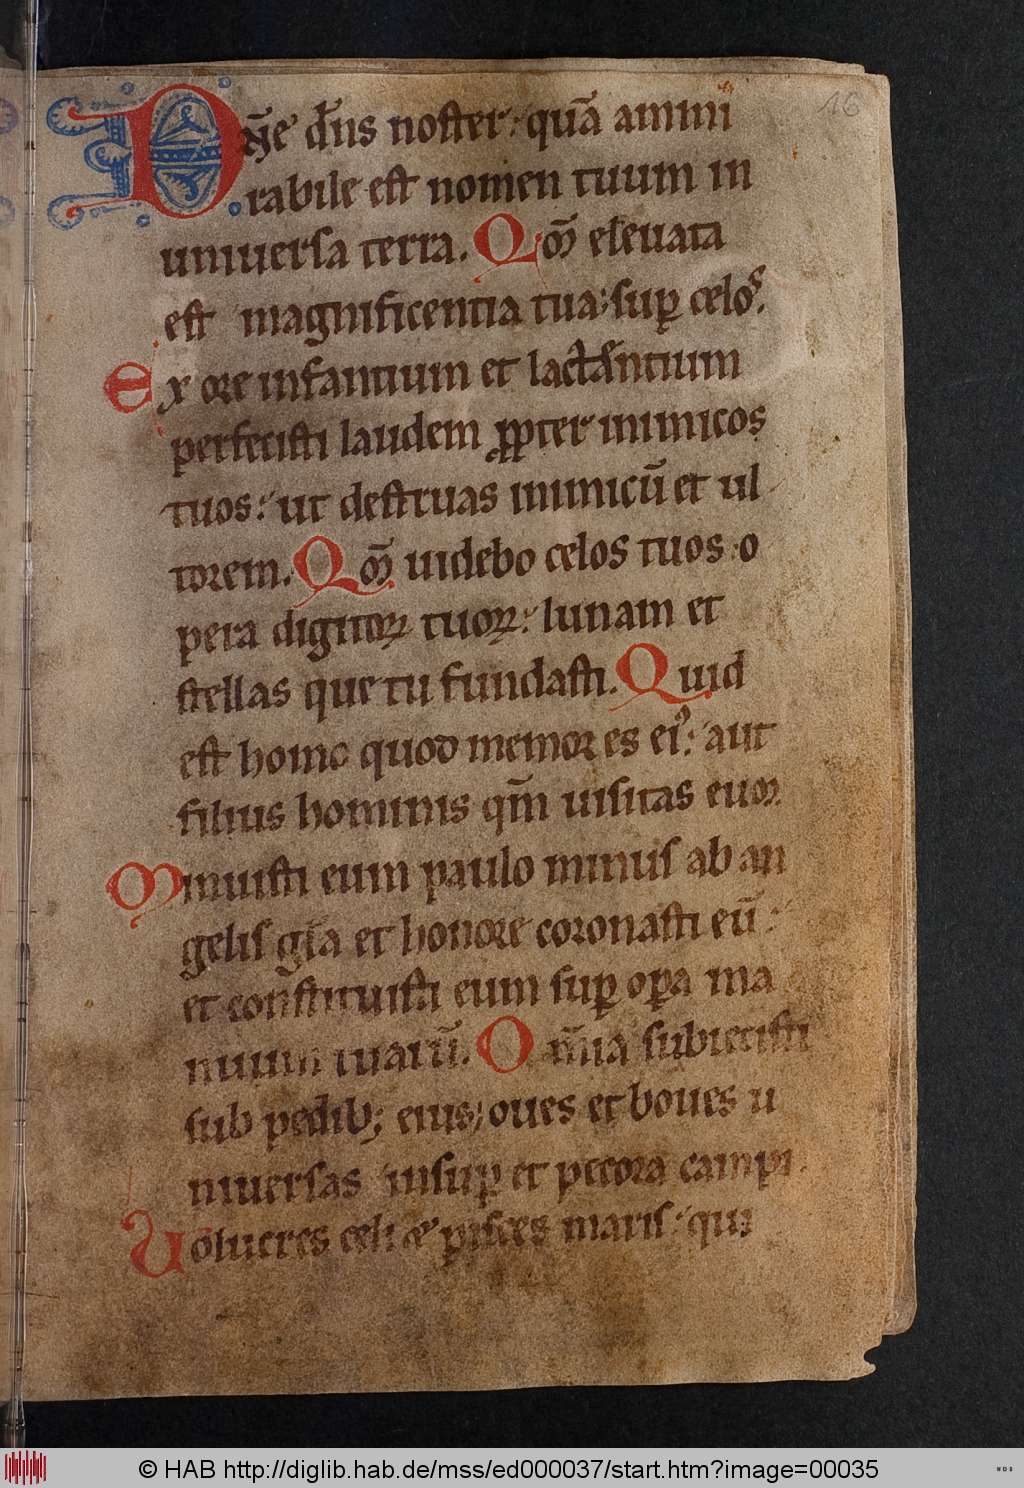 16
Dn̄e dn̄s noster: quā ammi
rabile est nomen tuum in
uniuersa terra. Qm̄ eleuata
est magnificentia tua: sup celos.
ex ore infantium et lactantium
perfecisti laudem ꝓpter inimicos
tuos: ut destruas inimicū et ul
torem. Qm̄ uidebo celos tuos: o
pera digitoꝝ tuoꝝ: lunam et
stellas que tu fundasti. Quid
est homo quod memor es ei᷒: aut
filius hominis qm̄ uisitas euꝫ
Minuisti eum paulo minus ab an
gelis gl̄a et honore coronasti eū:
et constituisti eum suꝑ oꝑa ma
nuum tuarū. Omīa subiecisti
sub pedibꝫ eius; oues et boues u
niuersas insuꝑ et pecora campi.
Uolucres celi & pisces maris: qui
© HAB http://diglib.hab.de/mss/ed000037/start.htm?image=00035